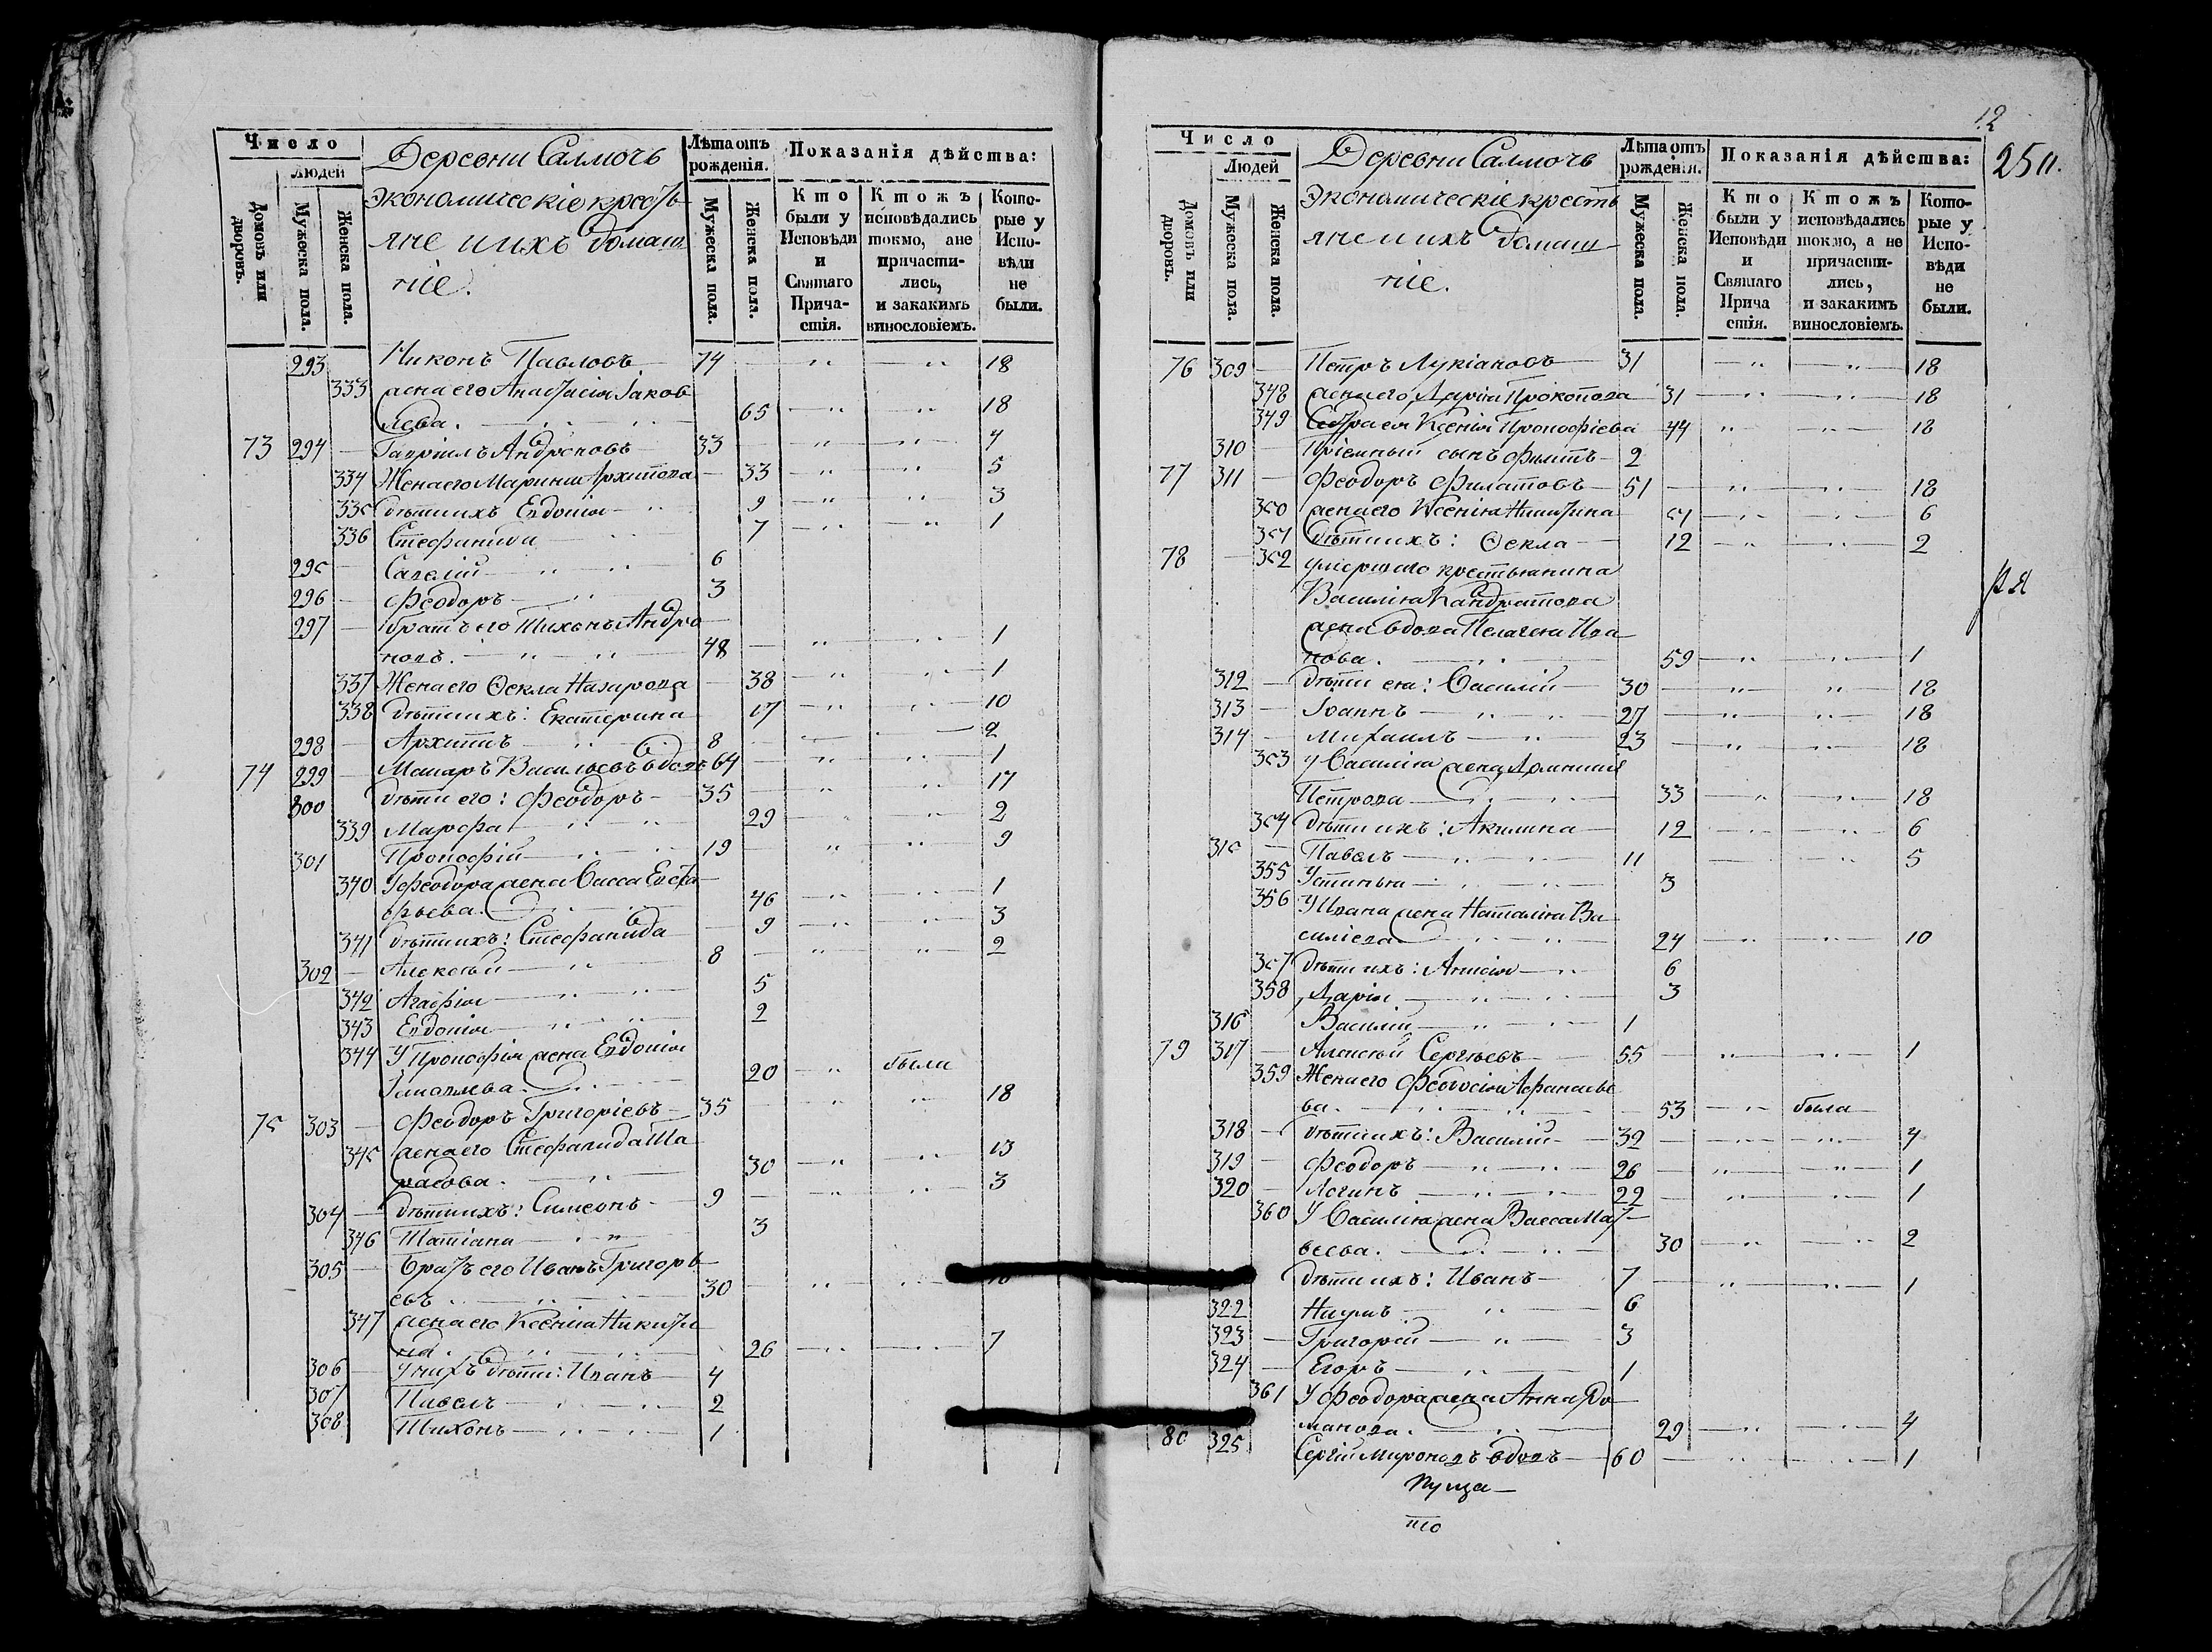 Число
Людей
Домовъ или дворовъ.
Мужеска пола.
Женска пола.
Деревни Салмочъ
экономическіе кресть
яне и ихъ домаш
ніе.
Лѣта отъ рожденія.
Мужеска пола.
Женска пола.
Показанія дѣйства:
Кто были у Исповѣди и Святаго Причастія.
Ктожъ исповѣдались токмо, а не причастились, и закакимъ винословіемъ.
Которые у Исповѣди не были.
293 Никонъ Павловъ 74 18
333 жена его Анастасія Іаков
лева. 65 18
73 294 Гавріилъ Андроновъ 33 4
334 Жена его Марина Архипова 33 5
335 дѣти ихъ Евдокія 9 3
336 Стефанида 7 1
295 Савелій 6
296 Феодоръ 3
297 братъ его Тихонъ Андро
новъ. 48 1
337 Жена его Ѳекла Назарова 38 1
338 дѣти ихъ: Екатерина 17 10
298 Архипъ 8 2
74 299 Макаръ Васильевъ вдовъ 64 1
300 дѣти его: Феодоръ 35 17
339 Марфа 29 2
301 Прокофій 19 9
340 У Феодора жена Васса Евста
фьева. 46 1
341 дѣти ихъ: Стефанида 9 3
302 Алексѣй 8 2
342 Агафія 5
343 Евдокія 2
344 У Прокофія жена Евдокія
20 была
75 303 Феодоръ Григоріевъ 35 18
345 жена его Стефанида Ма
30 13
304 дѣти ихъ: Симеонъ 9 3
346 Татіана 3
305 Братъ его Иванъ Григорь
евъ 30
347 жена его Ксенія Никити
на. 26 7
306 У нихъ дѣти: Иванъ 4
307 Павелъ 2
308 Тихонъ 1
12
250.
Число
Людей
Домовъ или дворовъ.
Мужеска пола.
Женска пола.
Деревни Салмочъ
экономическіе кресть
яне и ихъ домаш
ніе.
Лѣта отъ рожденія.
Мужеска пола.
Женска пола.
Показанія дѣйства:
Кто были у Исповѣди и Святаго Причастія.
Ктожъ исповѣдались токмо, а не причастились, и закакимъ винословіемъ.
Которые у Исповѣди не были.
76 309 Петръ Лукіановъ 31 18
348 жена его Дарія Прокопова 31 18
349 Сестра ея Ксенія Прокофіева 44 18
310 Пріемный сынъ Филипъ 2
77 311 Феодоръ Филатовъ 51 18
350 жена его Ксенія Никитина 51 6
351 дѣти ихъ: Ѳекла 12 2
78 352 умершаго крестьянина
Василія Кандратова
жена вдова Пелагея Ива
нова. 59 1
312 дѣти ея: Василій 30 18
313 Іоаннъ 27 18
314 Михаилъ 23 18
353 у Василія жена Домникія
Петрова 33 18
354 дѣти ихъ: Акилина 12 6
315 Павелъ 11 5
355 Устинья 3
356 У Ивана жена Наталія Ва
силіева 24 10
357 дѣти ихъ: Анисія 6
358 Дарія 3
316 Василій 1
79 317 Алексѣй Сергѣевъ 55 1
359 Жена его Феодосія Афанасье
ва. 53 была
318 дѣти ихъ: Василій 32 4
319 Феодоръ 26 1
320 Логинъ 22 1
360 У Василія жена Васса Мат
веева. 30 2
дѣти ихъ: Иванъ 7 1
322 Наумъ 6
323 Григорій 3
324 Егоръ 1
361 У Феодора жена Анна Ро
манова. 29 4
80 325 Сергій Мироновъ вдовъ 60 1